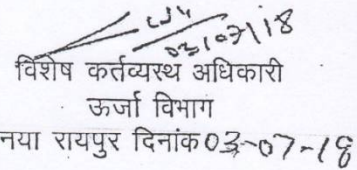 03/07/18
विशेष कर्तव्यस्थ अधिकारी
ऊर्जा विभाग
नया रायपुर दिनांक 03-07-18